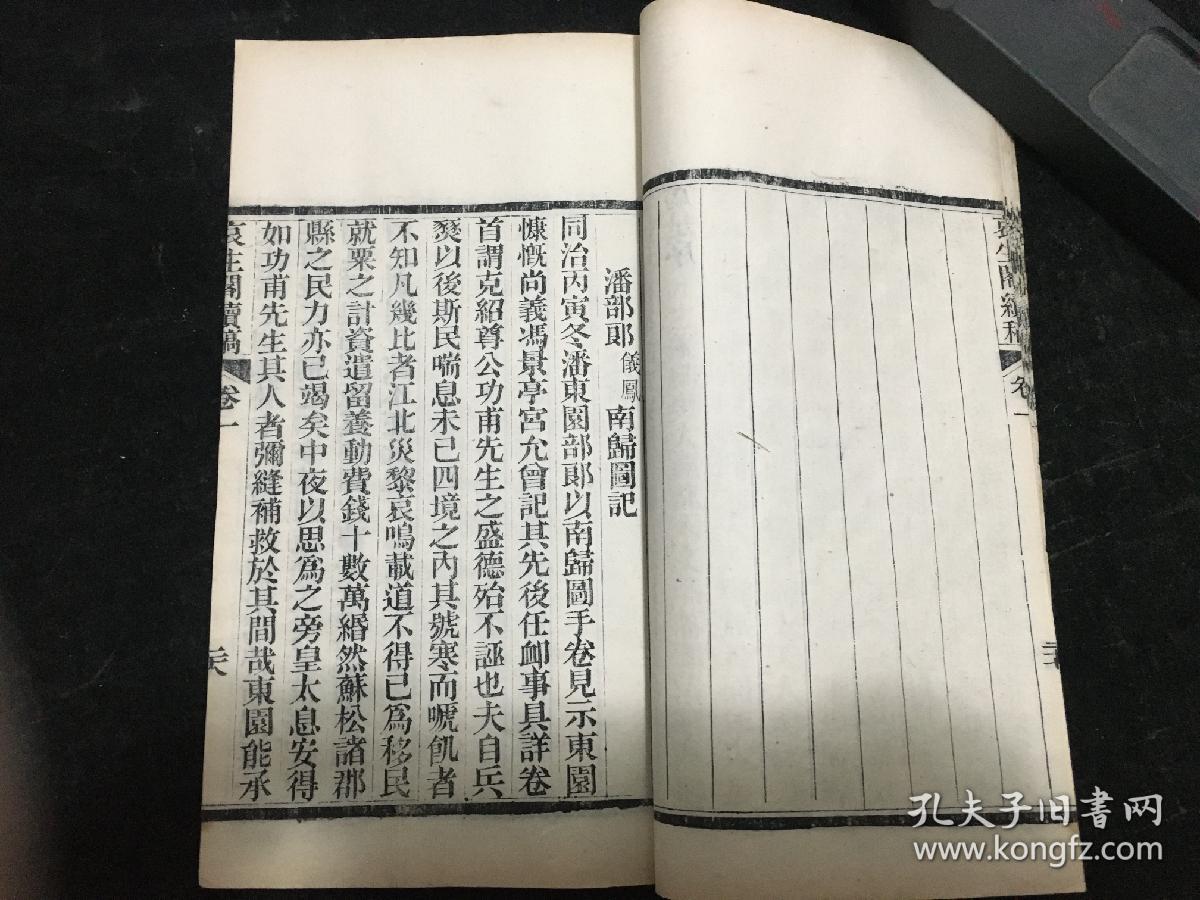 潘部郎儀鳳南歸圖記
同治丙寅冬潘東園部郎以南歸圖手卷見示東園
慷慨尚義馮景亭宮允曾記其先後任卹事具詳卷
首謂克紹尊公功甫先生之盛德殆不誣也夫自兵
燹以後斯民喘息未已四境之內其號寒而嗁飢者
不知凡幾比者江北災黎哀鳴載道不得已為移民
就粟之計資遣留養動費錢十數萬緡然蘇松諸郡
縣之民力亦已竭矣中夜以思為之旁皇太息安得
如功甫先生其人者彌縫補救於其間哉東園能承
哀生閣續稿
卷一
二六
哀生閣續稿
卷一
孔夫子旧书网
www.kongfz.com